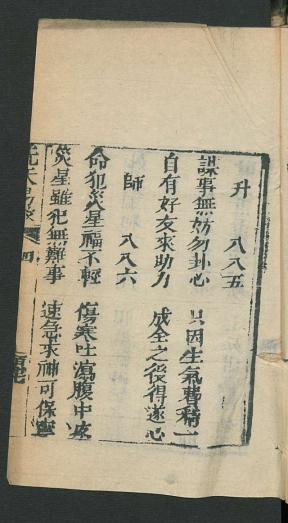 升　八八五
謀事無妨勿掛心　只因生氣費精
自有好友來助力　成全之後得遂心
師　八八六
命犯災星禍不輕　傷寒吐瀉腹中疼
災星雖犯無難事　速急求神可保寧
先天易 四